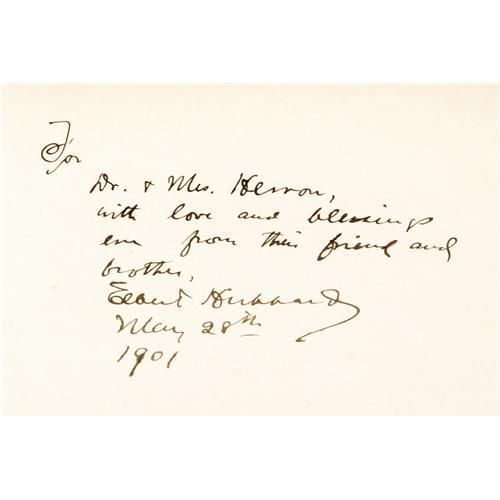 For
Dr. & Mrs. Herron,
with love and blessings
ever from their friend and
brother,
Elbert Hubbard
May 28th
1901